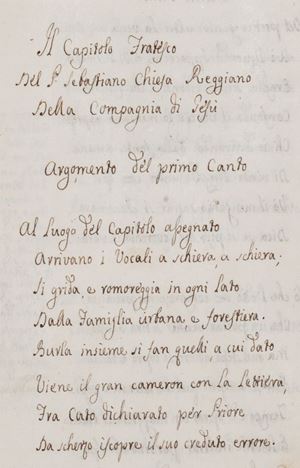 Il Capitolo Fratesco
Del P. Sebastiano Chiesa Reggiano
Della Compagnia di Gesù
Argomento del primo Canto
Al luogo del Capitolo assegnato
Arrivano i Vocali a schiera, a schiera;
Si grida, e romoreggia in ogni lato
Dalla Famiglia urbana e forestiera.
Burla insieme si fan quelli, a cui dato
Viene il gran cameron con la lettiera,
Fra Cato dichiarato per Priore
Da scherzo iscopre il suo creduto errore.